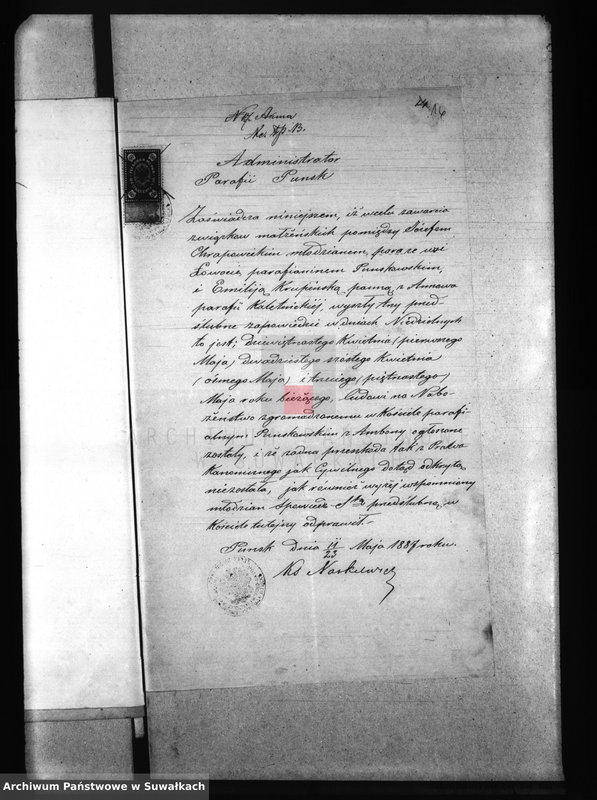 24 16
Administrator
Parafii Punsk
Zaświadcza niniejszem, iż w celu zawarcia
związkow małżeńskich pomiędzy Józefem
młodzianem,
parafianinem Punskowskim,
i Emiliją Krupińską panną z Annowa
parafii Kaletnickiej, wyszły trzy przed-
ślubne zapowiedzie w dniach Niedzielnych
to jest; dziewiętnastego Kwietnia (pierwszego
Maja) dwadziestego szóstego Kwietnia
(ósmego Maja) i trzeciego (piętnastego)
Maja roku bieżącego, ludowi na Nabo-
żeństwo zgromadzonemu w Kościele parafi-
alnym Punskowskim z Ambony ogłoszone
zostały, i że żadna przeszkoda tak z Prawa
Kanonicznego jak Cywilnego dotąd odkrytą
niezostała, jak również wyżej wspomniony
młodzian Spowiedź przedślubną w
Kościele tutejszy odprawił.-
Punsk dnia 11/23 Maja 1887 roku.
Ks Narkiewicz
Archiwum Państwowe w Suwałkach